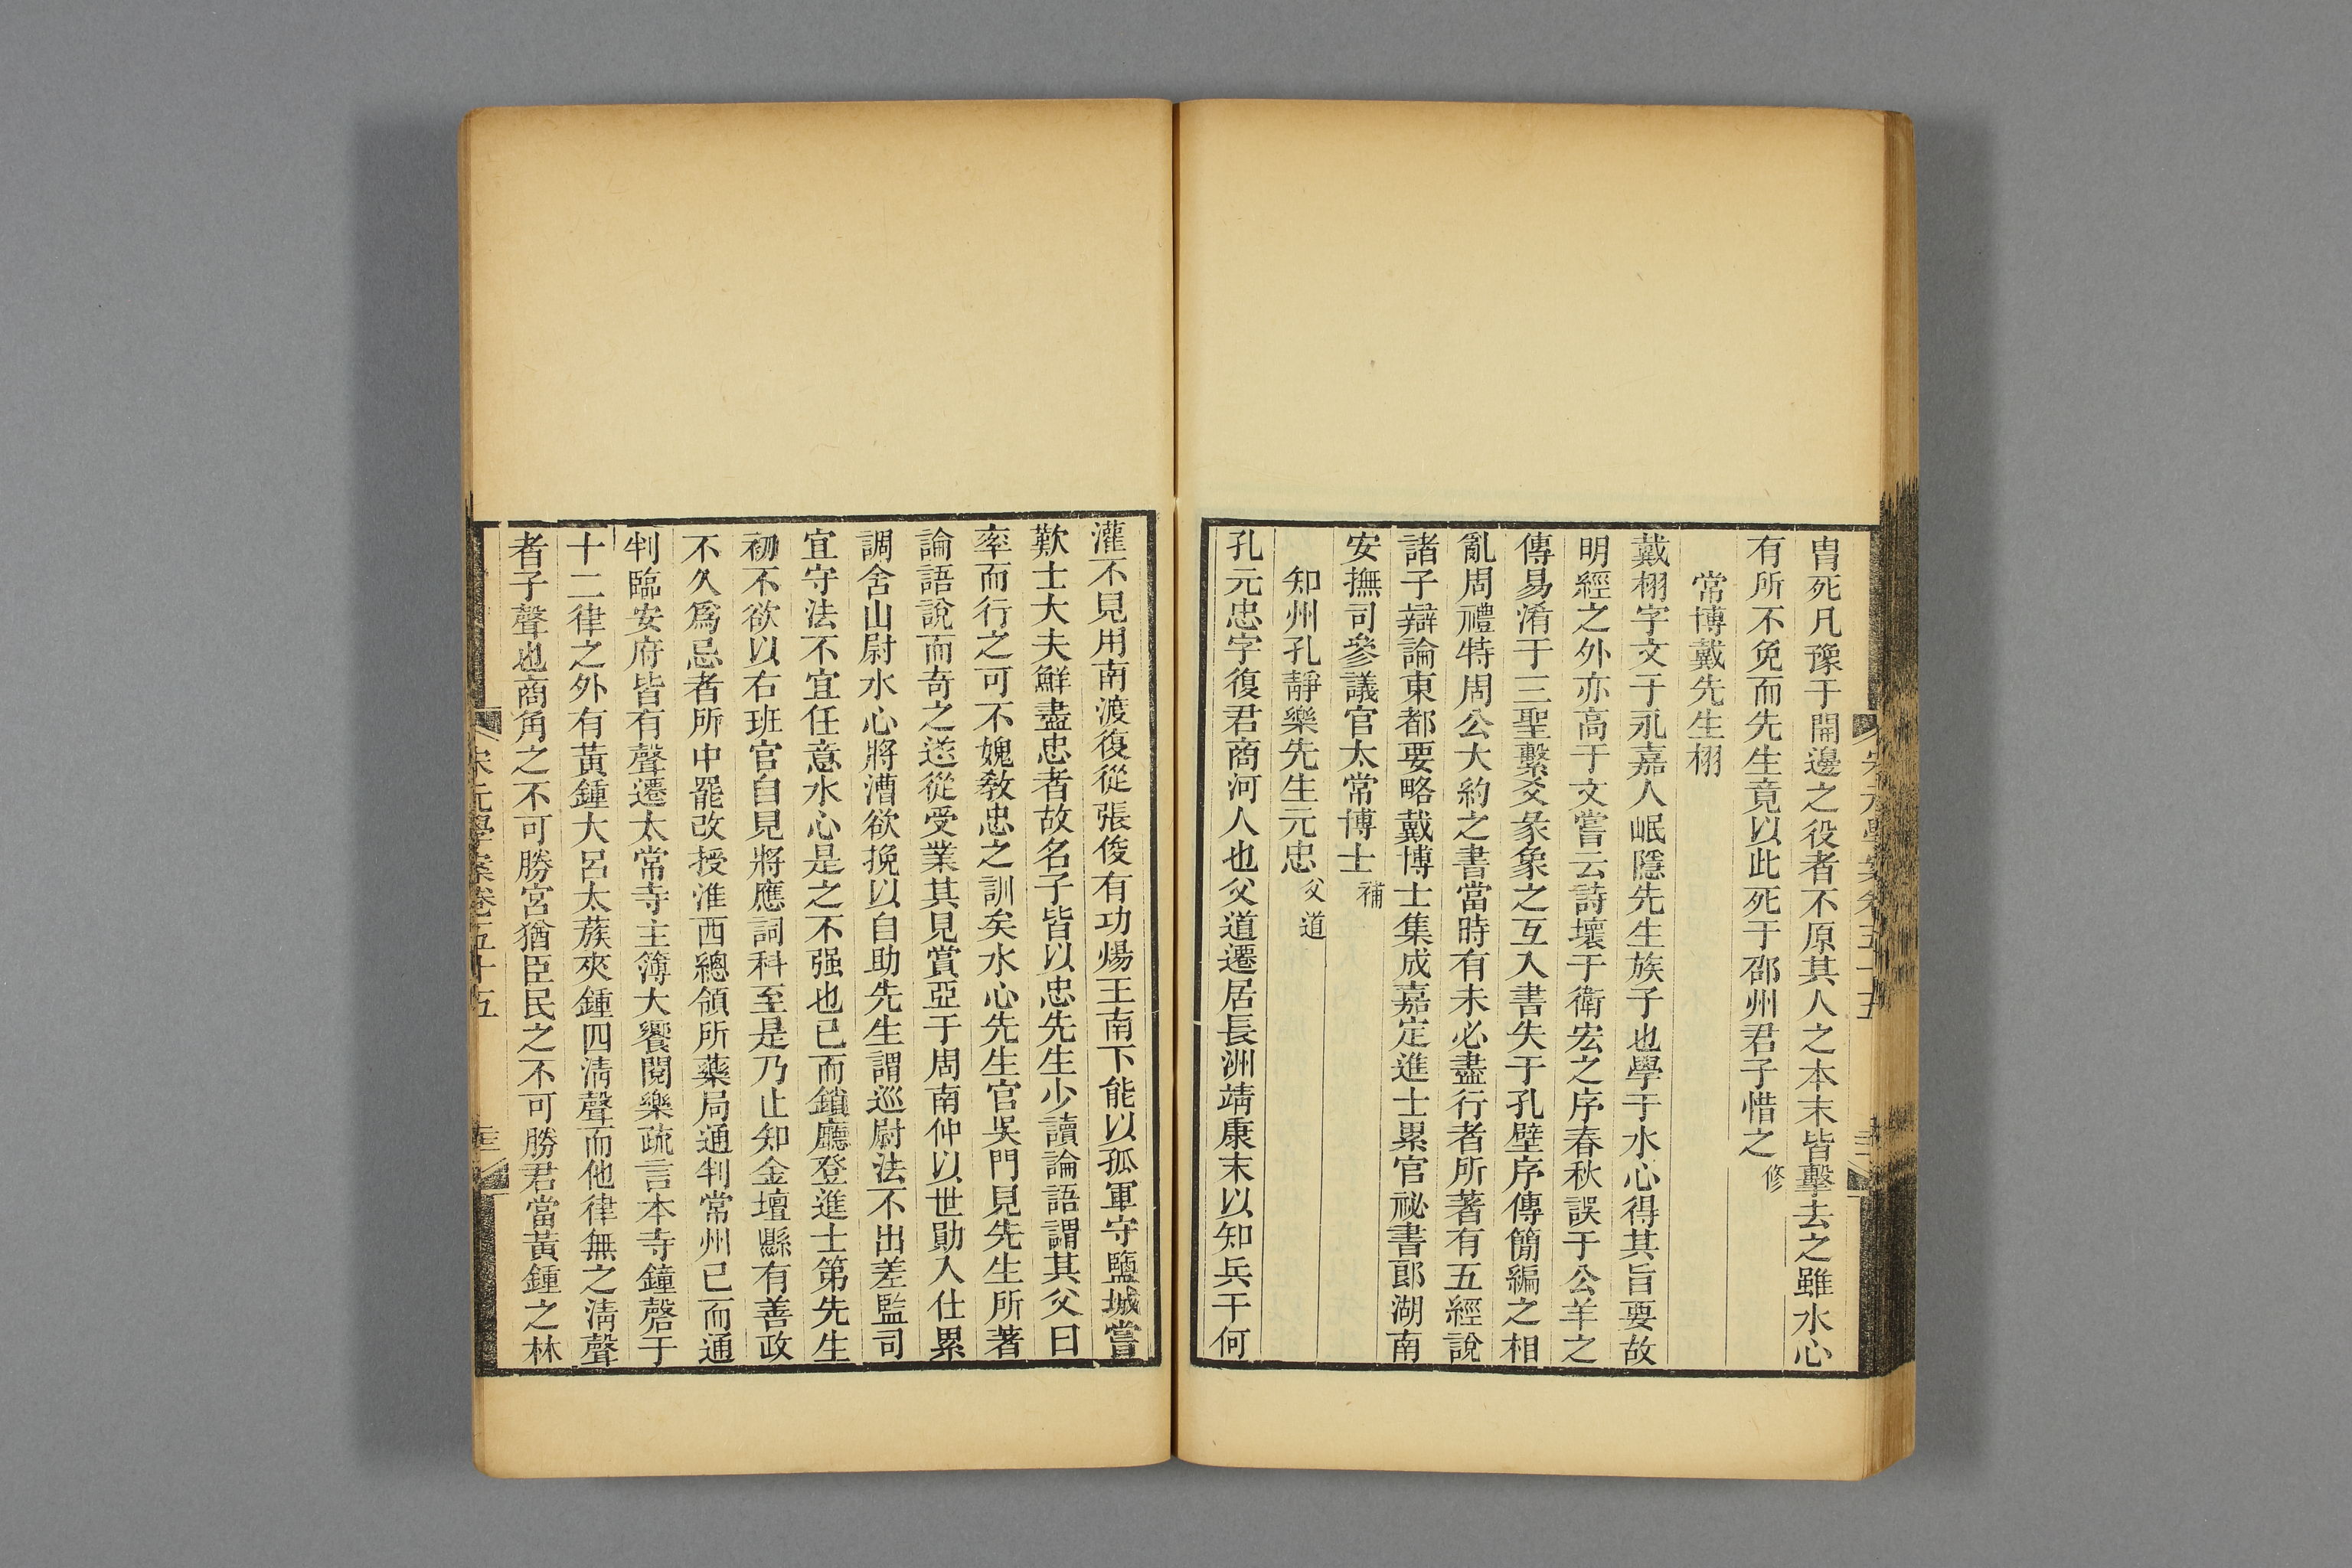 冑死凡豫于開邊之役者不原其人之本末皆擊去之雖水心
有所不免而先生竟以此死于邵州君子惜之修
常博戴先生栩
戴栩字文子永嘉人岷隱先生族子也學于水心得其旨要故
明經之外亦高于文嘗云詩壞于衛宏之序春秋誤于公羊之
傳易淆于三聖繫爻彖象之互入書失于孔壁序傳簡編之相
亂周禮特周公大約之書當時有未必盡行者所著有五經說
諸子辯論東都要略戴博士集成嘉定進士累官祕書郎湖南
安撫司參議官太常博士補
知州孔靜樂先生元忠父道
孔元忠字復君商河人也父道遷居長洲靖康末以知兵干何
灌不見用南渡復從張俊有功煬王南下能以孤軍守鹽城嘗
歎士大夫鮮盡忠者故名子皆以忠先生少讀論語謂其父曰
率而行之可不媿敎忠之訓矣水心先生官吳門見先生所著
論語說而奇之遂從受業其見賞亞于周南仲以世勛入仕累
調含山尉水心將漕欲挽以自助先生謂巡尉法不出差監司
宜守法不宜任意水心是之不强也已而鎖廳登進士第先生
初不欲以右班官自見將應詞科至是乃止知金壇縣有善政
不久爲忌者所中罷改授淮西總領所藥局通判常州已而通
判臨安府皆有聲遷太常寺主簿大饗閱樂疏言本寺鐘磬于
十二律之外有黃鍾大呂太蔟夾鍾四淸聲而他律無之淸聲
者子聲也商角之不可勝宮猶臣民之不可勝君當黃鍾之林
宋元學案卷五十五